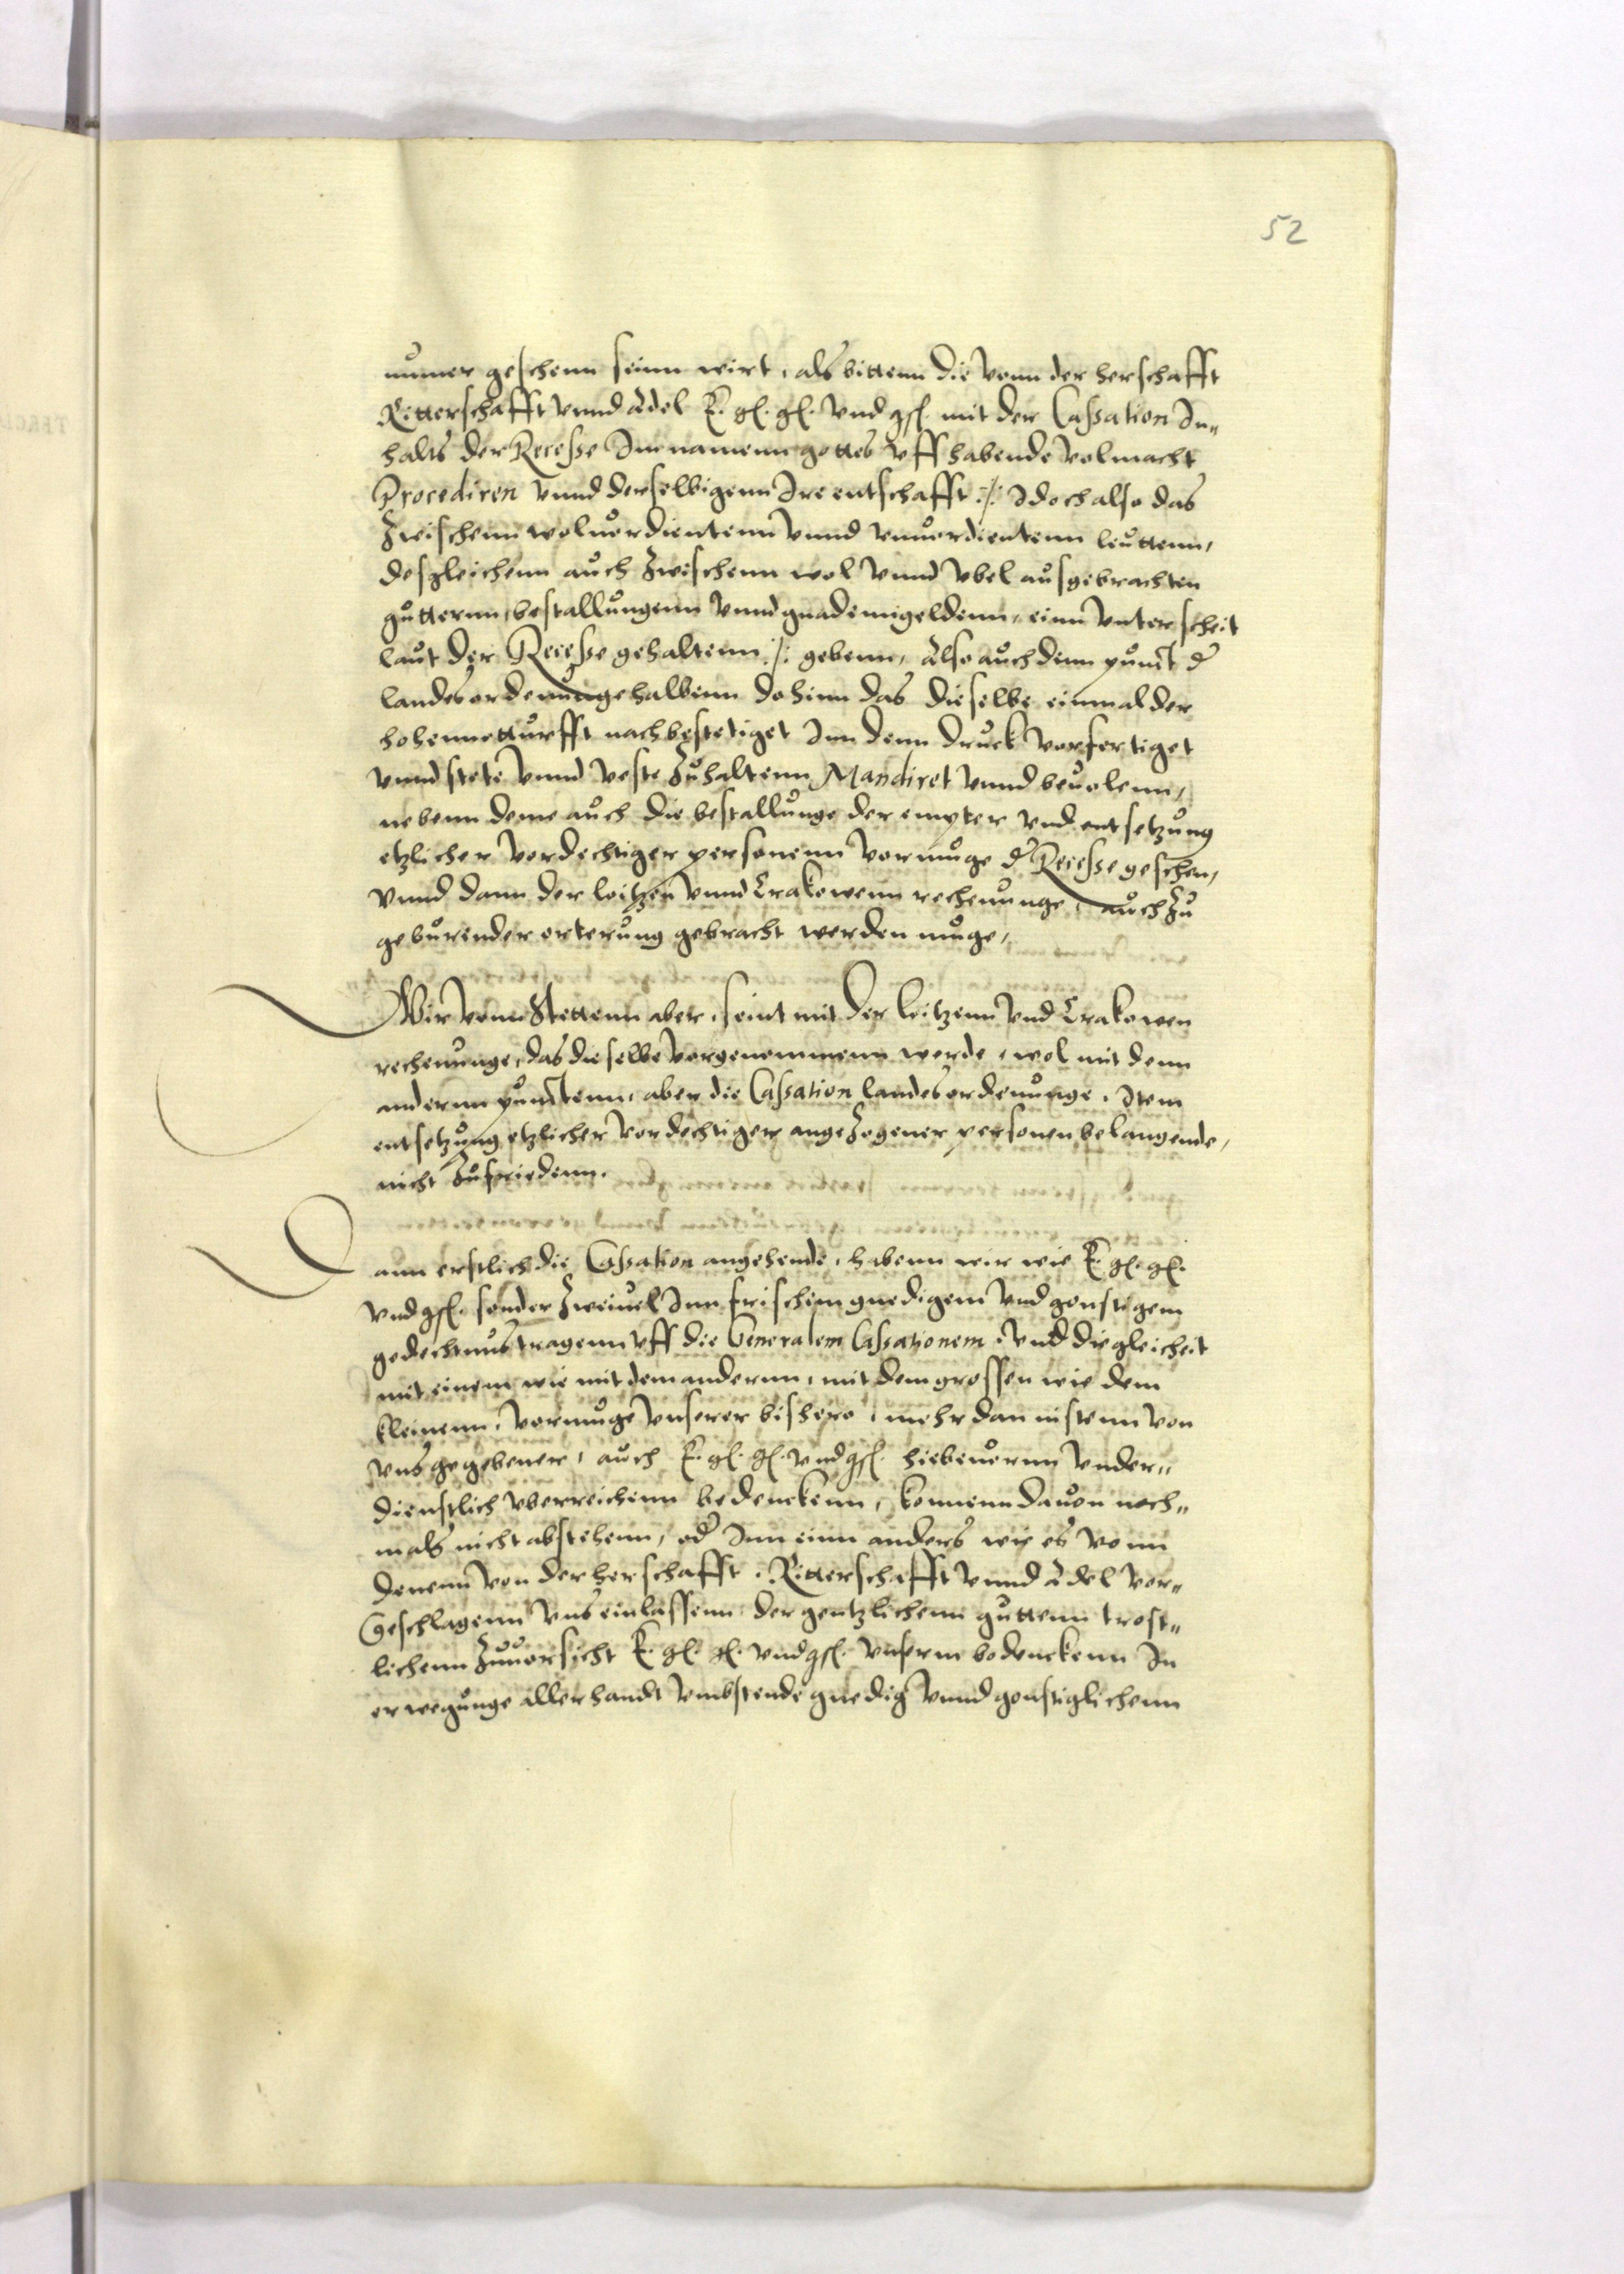 52
numer geschenn seinn wirt, als bittenn die vonn der herschafft
Ritterschafft vnnd Adel E. gl. gl. vnd gsl. mit der Cassation In„
halts der Recesse Im namenn gottes vff habende volmacht
Procediren vnnd derselbigenn Ire entschafft :/: Idoch also das
Zwischenn woluordientenn vnnd vnuordientenn leuttenn,
desgleichenn auch Zwischenn wol vnnd vbel ausgebrachten
gutternn, bestallungenn vnnd gnadenngeldenn, einn vnterscheit
laut der Recesse gehaltenn :/: gebenn, Also auch denn punct d
landesordenunge halbenn dohinn das dieselbe einmal der
hohennotturfft nach bestetiget Inn denn druck vorfertiget
vnnd stete vnnd veste Zuhaltenn Mandiret vnnd beuolenn,
nebenn deme auch die bestallunge der empter vnd entsetzung
etzlicher vordechtiger personenn vormuge d Recesse geschen,
vnnd dann der loitzen vnnd Crakowenn rechenunge, auch Zu
geburender orterung gebracht werden muge,
Wir vonn Stettenn aber, seint mit der loitzenn vnd Crakowen
rechenunge, das dieselbe vorgenommenn werde, wol mit denn
andernn punctenn, aber die Cassation landesordenunge, Item
entsetzung etzlicher vordechtiger angeZogener personen belangende,
nicht Zufriedenn.
Dann erstlich die Cassation angehende, habenn wir wie E. gl. gl.
vnd gsl. sonder Zweiuel Inn frischem gnedigem vnd gonstigem
gedechtnus tragenn vff die Generalem Cassationem, vnd die gleicheit
mit einem wie mit dem andernn, mit dem grossen wie dem
kleinenn, vormuge vnserer bishero, mehr dan eistenn von
vns gegebener, auch E. gl. gl. vnd gsl. hiebeuornn vnder„
dienstlich vberreichenn bedenckenn, konnenn dauon noch„
mals nicht abstehenn, od Inn einn anders wie es vonn
denenn von der herschafft, Ritterschafft vnnd Adel vor„
Geschlagenn vns einlassenn, der gentzlichenn guttenn trost„
lichenn Zuuorsicht E. gl. gl. vnd gsl. vnserm bedenckenn In
erwegunge allerhandt vmbstende gnedig vnnd gonstiglichenn